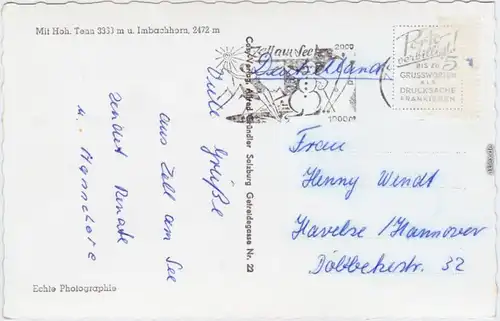 Mit Hoh. Tenn 3330 m u. Imbachhorn, 2472 m
Viele Grüße
aus Zell am See
sendet Renate
u. Hannelore
Echte Photographie
Cosy-Verlag Alfred Gründler Salzburg Getreidegasse Nr. 22
Zell am See
2000
1000m
Deutschland
Porto
verbilligt!
BIS ZU 5
GRUSSWORTEN
ALS
DRUCKSACHE
FRANKIEREN
Frau
Henny Wendt
Havelse / Hannover
32